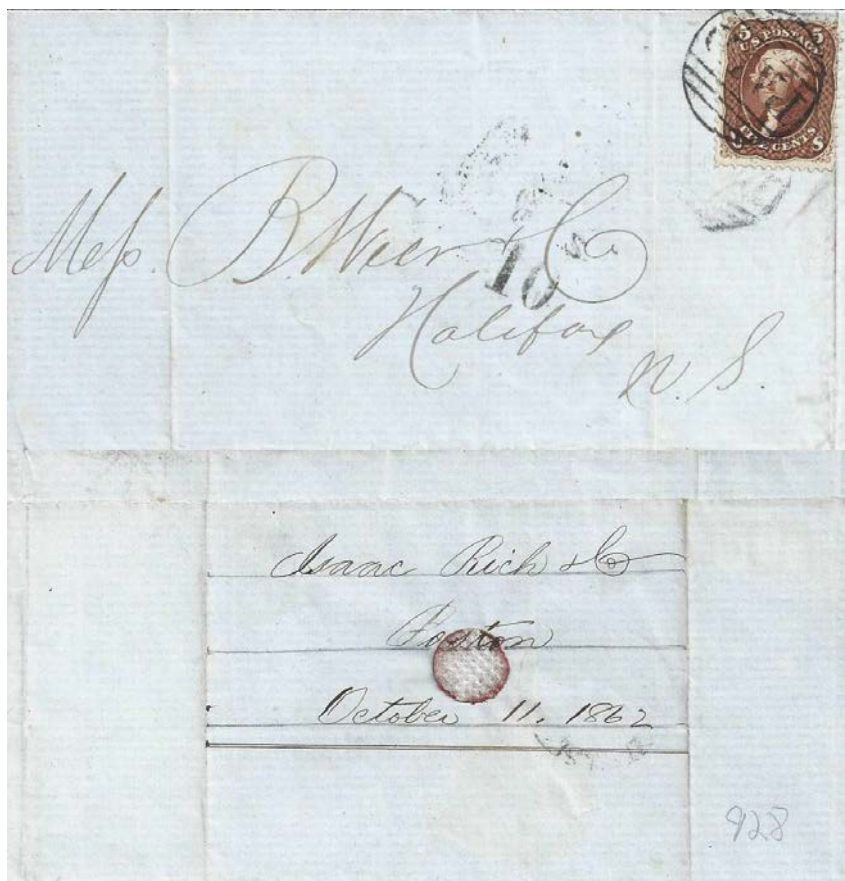 5 5
U.S. POSTAGE
FIVE CENTS
Mess. B. Wier & Co
10
Halifax
N. S.
Isaac Rich & Co
Boston
October 11. 1862
928